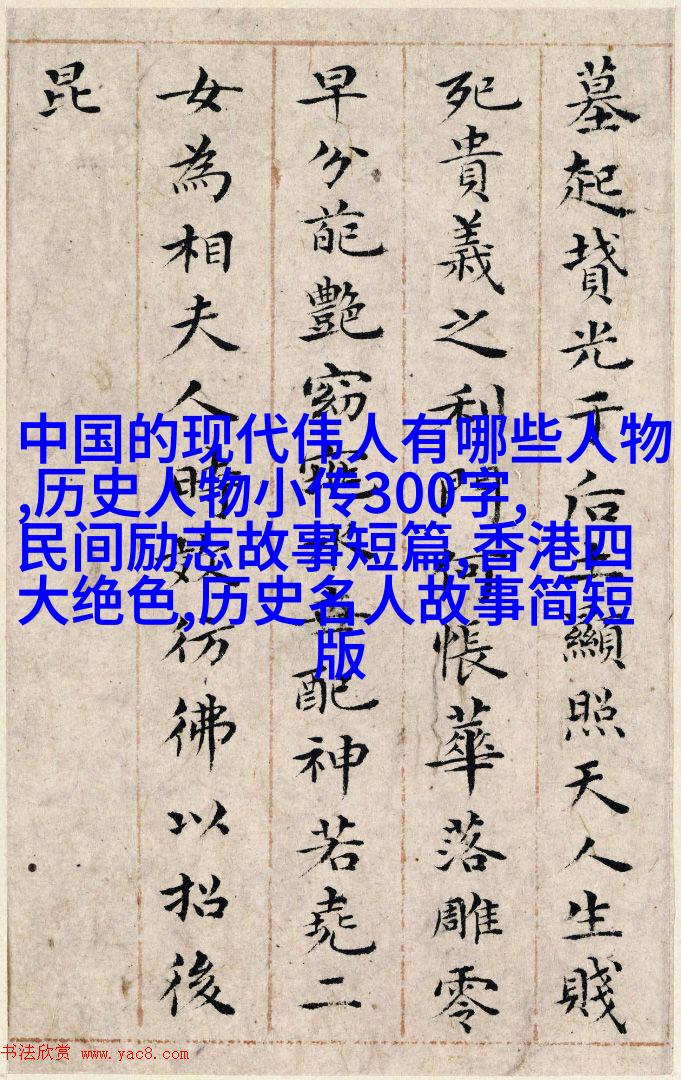 墓起墳光于后土顯照天人生賤
死貴義之利門何悵華落雕零
早分葩艷窈窕永世配神若堯二
女為相夫人時效彷彿以招後
昆
中国的现代伟人有哪些人物
,历史人物小传300字,
民间励志故事短篇,香港四
大绝色,历史名人故事简短
版
书法欣赏 www.yac8.com